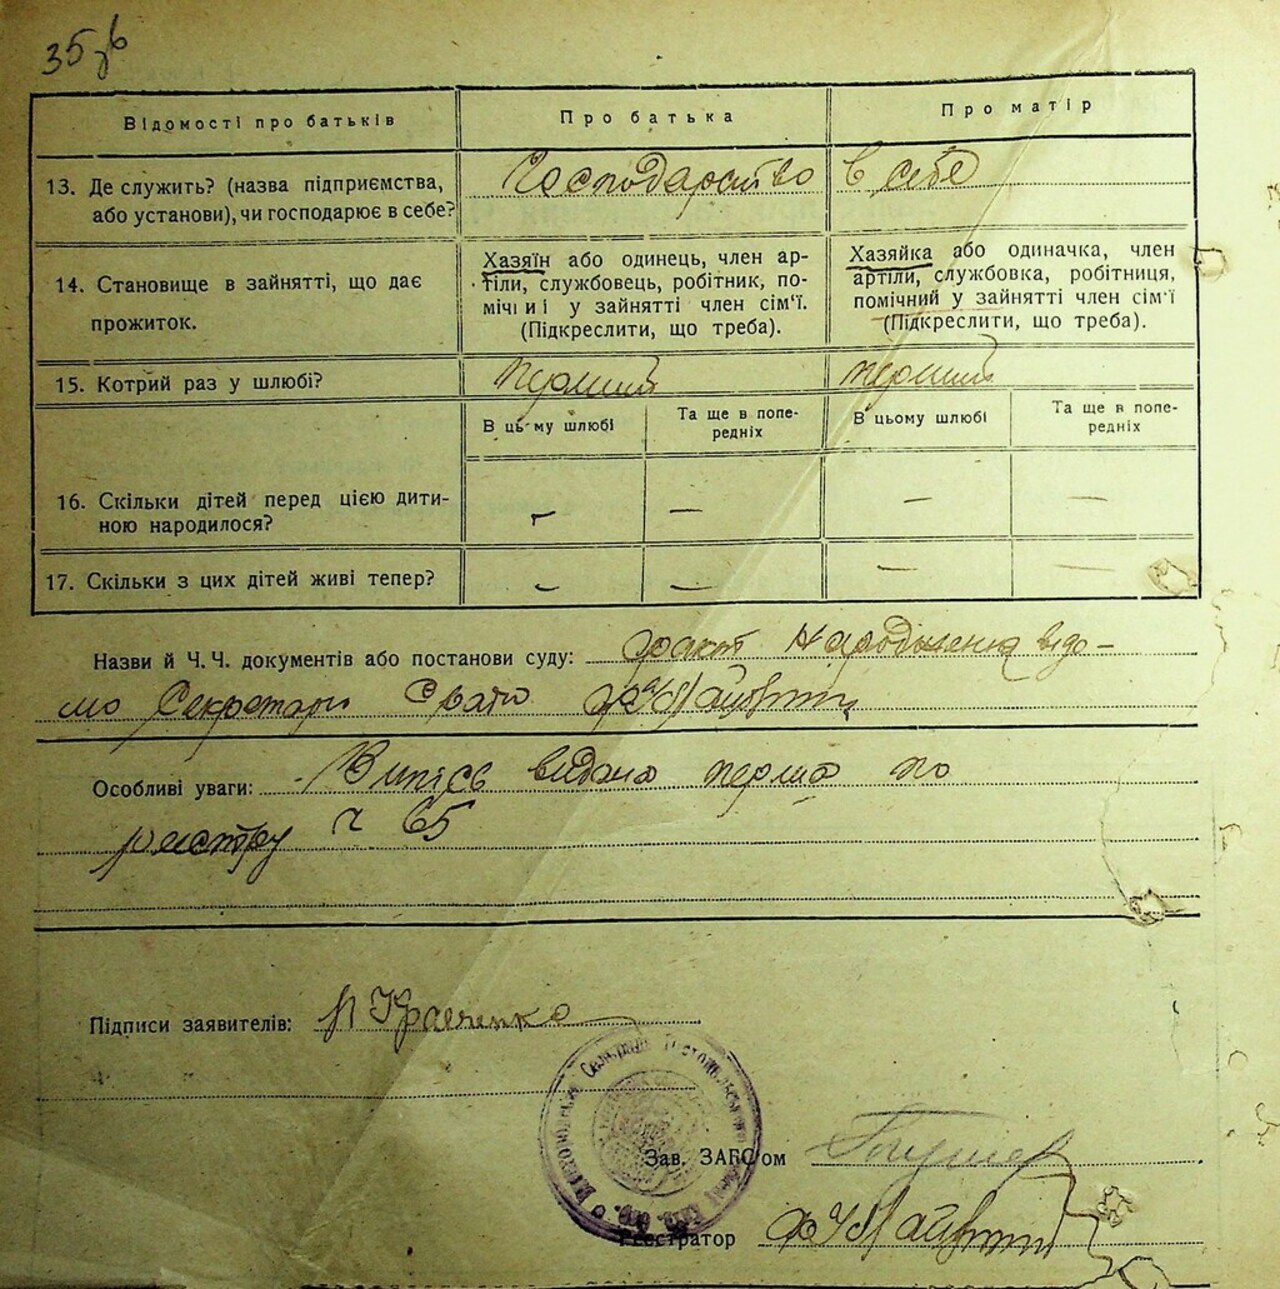 35
Відомості про батьків
Про батька
Про матір
13. Де служить? (назва підприємства,
або установи), чи господарює в себе?
Господарство в себе
14. Становище в зайнятті, що дає
прожиток.
Хазяїн або одинець, член ар-
тіли, службовець, робітник, по-
мічі и і у зайнятті член сім'ї.
(Підкреслити, що треба).
Хазяйка або одиначка, член
артіли, службовка, робітниця,
помічний у зайнятті член сім'ї
(Підкреслити, що треба).
15. Котрий раз у шлюбі?
перший
перший
В цьму шлюбі
Та ще в попе-
редніх
В цьому шлюбі
Та ще в попе-
редніх
16. Скільки дітей перед цією дити-
ною народилося?
— — — —
17. Скільки з цих дітей живі тепер?
— — — —
Назви й Ч. Ч. документів або постанови суду: факт Народження відо-
мо Секретарю
Особливі уваги: Випись видана перша по
реєстру ч 65
Підписи заявителів: Кравченко
Зав. ЗАГС'ом
Реєстратор